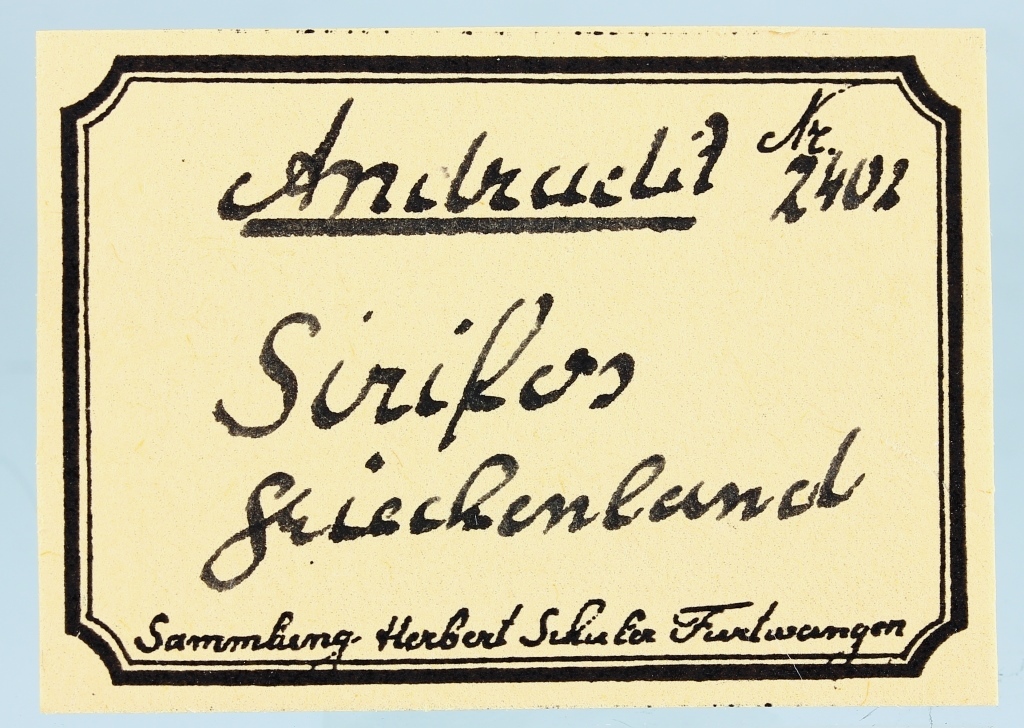 Andradit Nr. 2402
Sirifos
Griechenland
Sammlung Herbert Schuler Furtwangen